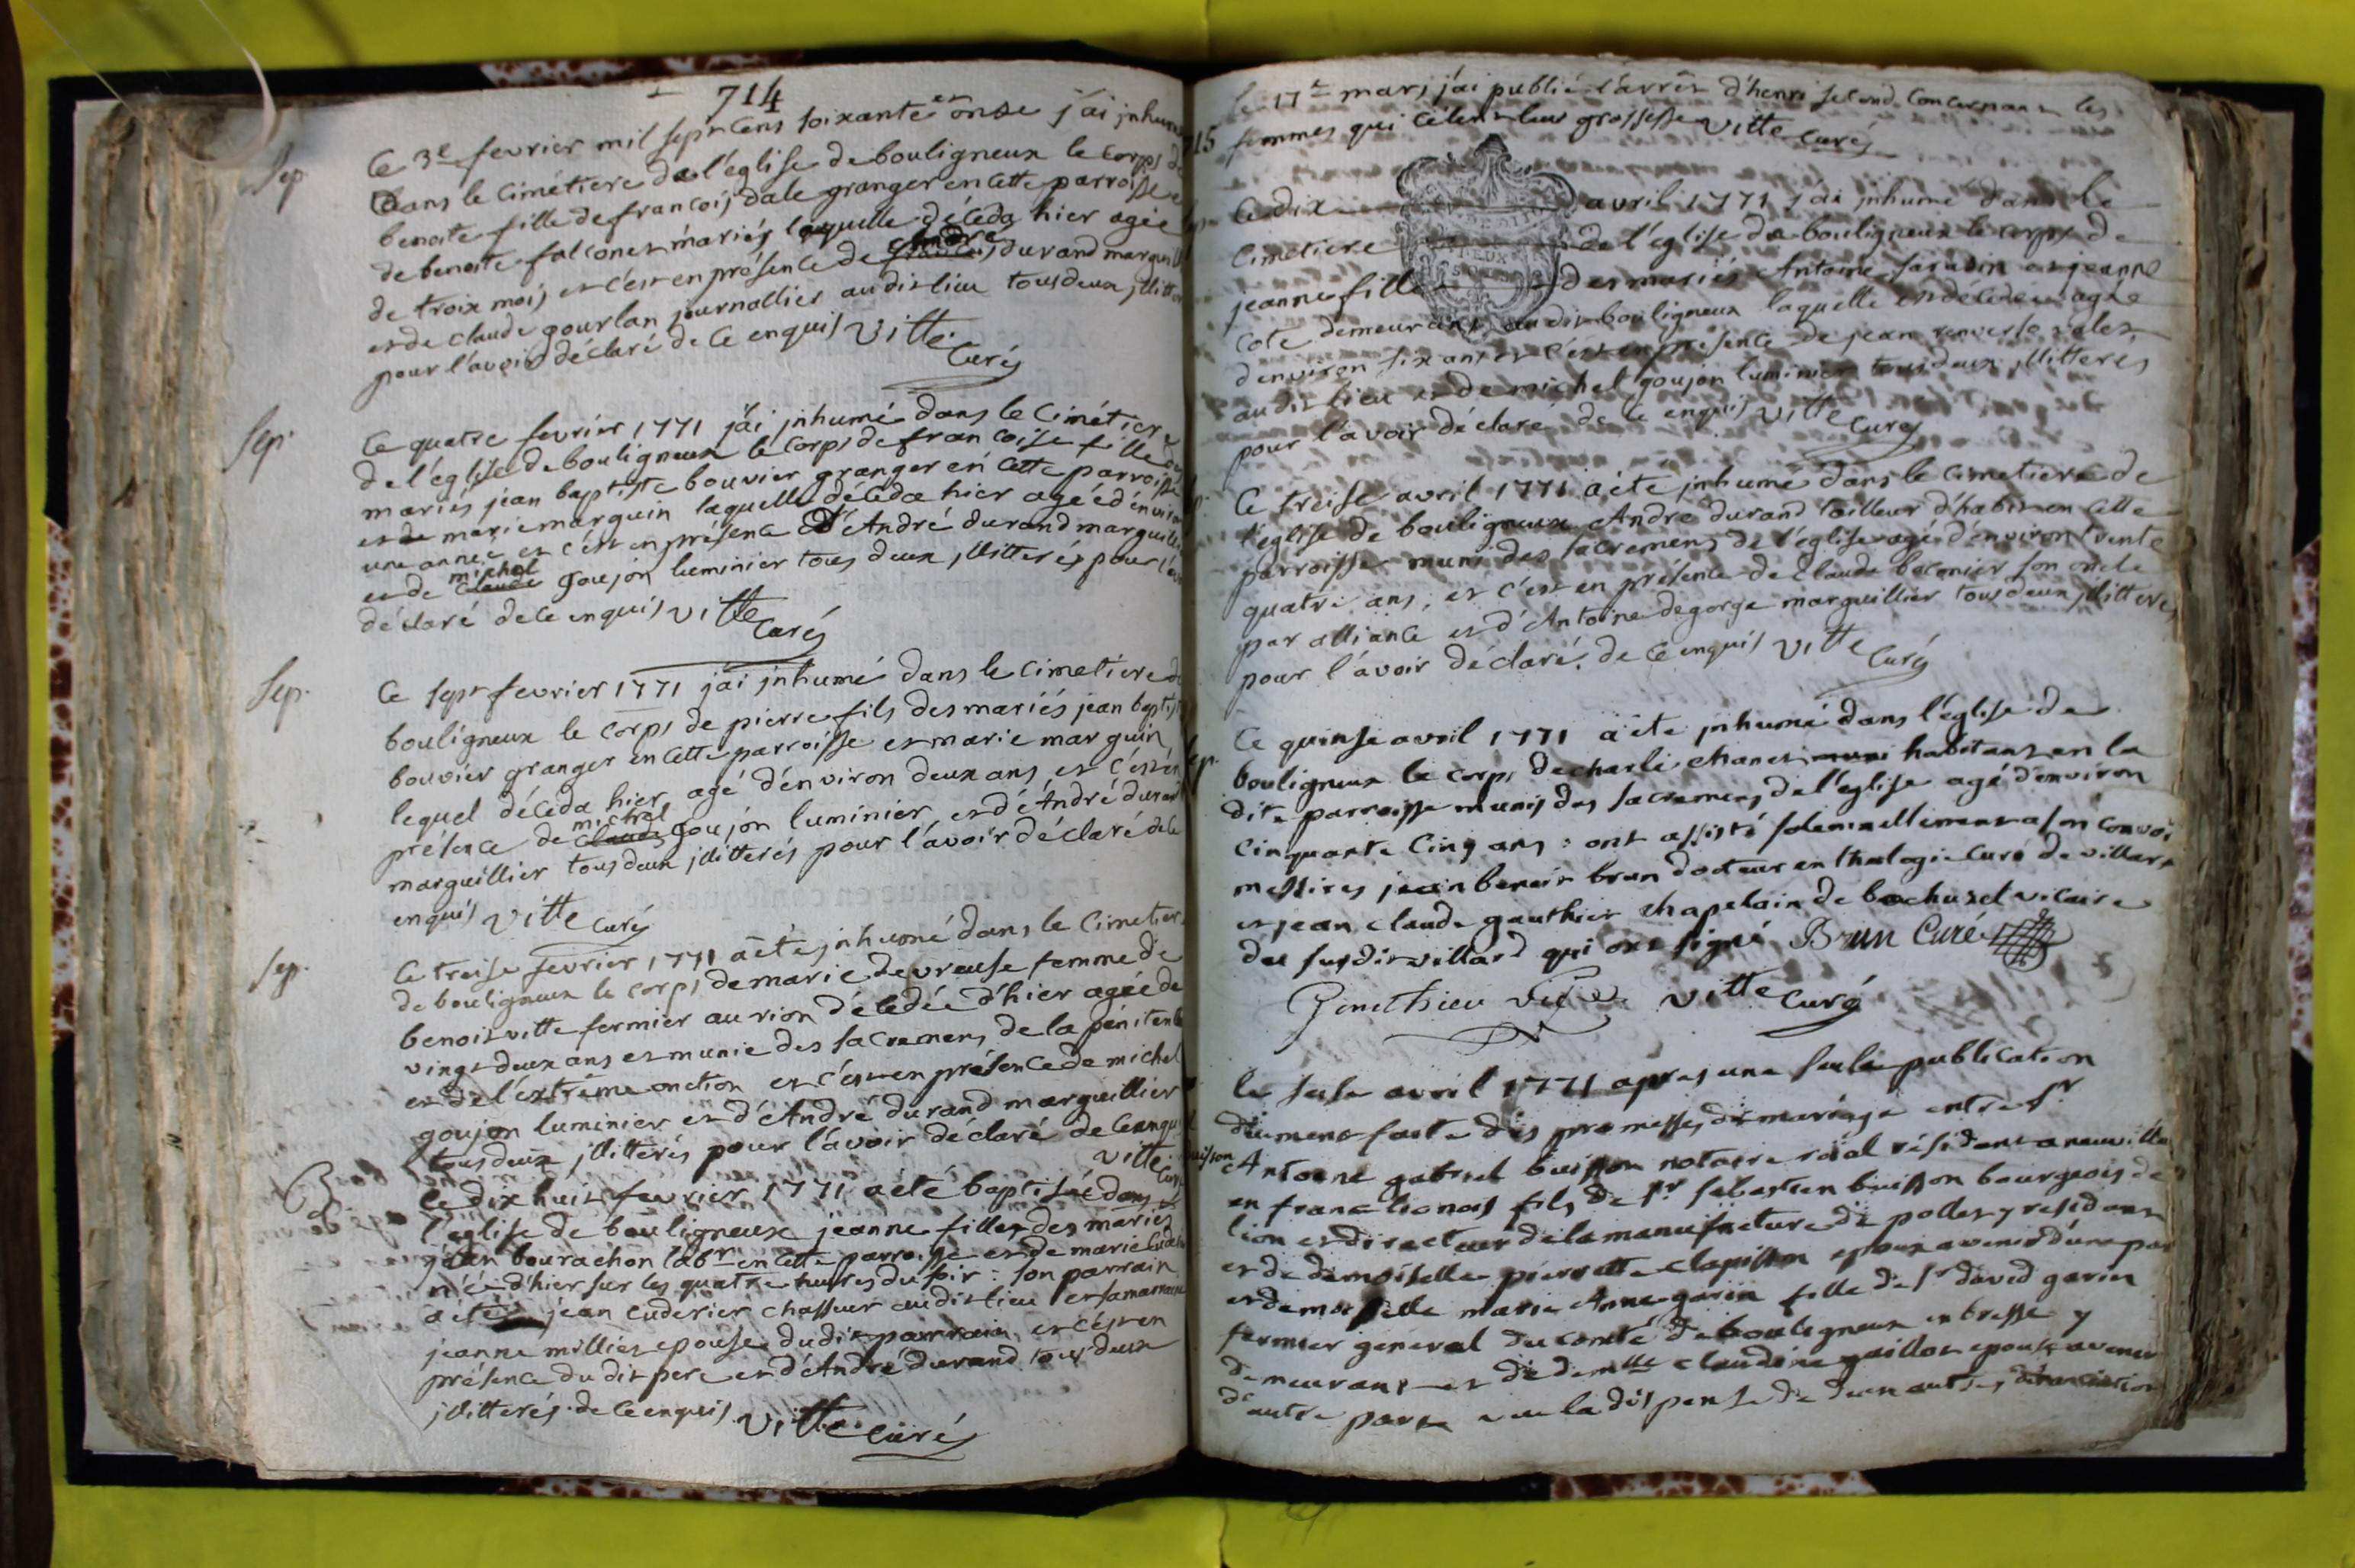 714
Sep.
Ce 3e fevrier mil sept cens soixante et onse j'ai jnhumé
Dans le cimétiere de l'église de bouligneux le corps de
benoite fille de francois dale granger en cette parroisse et
de benoite falconet mariés laquelle déceda hier agée
de troix mois et c'est en présence de andré durand marguill
et de claude gourlan journallier audit lieu tous deux jllitter
pour l'avoir déclaré de ce enquis Vitte Curé
Sep.
Ce quatre fevrier 1771 j'ai jnhumé dans le Cimétiere
de l'église de bouligneux le corps de francoise fille des
mariés jean baptiste bouvier granger en cette parroisse
et de marie marguin laquelle déceda hier agée d'environ
une année et c'est en présence d'André durand marguilli
et de michel goujon luminier tous deux jllitterés pour l'av
déclaré de ce enquis Vitte Curé
Sep.
Ce sept fevrier 1771 j'ai jnhumé dans le cimetiere de
bouligneux le corps de pierre fils des mariés jean baptist
bouvier granger en cette parroisse et marie marguin
lequel déceda hier agé d'environ deux ans et c'est en
présence de michel goujon luminier, et d'André durand
marguillier tous deux jllitterés pour l'avoir déclaré de ce
enquis Vitte Curé
Sep.
Ce treise fevrier 1771 a été jnhumé dans le Cimetier
de bouligneux le corps de marie devreuse femme de
benoit vitte fermier au rion décedée d'hier agée de
vingt deux ans et munie des sacremens de la pénitence
et de l'extrême onction et c'est en présence de michel
goujon luminier et d'André durand marguillier
tous deux jllitterés pour l'avoir déclaré de ce enquis
Vitte Curé
B
le dix huit fevrier 1771 a été baptisée dans
l'eglise de bouligneux jeanne fille des mariés
jean bourachon labr en cette parroisse et de marie
née d'hier sur les quatre heures du soir : son parrain
a été jean cuderier chasseur audit lieu et sa marraine
jeanne millier epouse dudit parrain, et c'est en
présence dudit pere et d'André durand tous deux
jllitterés de ce enquis Vitte Curé
715
le 17e mars j'ai publié l'arrêt d'henri second concernant les
femmes qui célent leur grossesse Vitte Curé
Ce dix avril 1771 j'ai jnhumé dans le
Cimetiere de l'église de bouligneux le corps de
jeanne fille des mariés Antoine saradin et jeanne
cote demeurans audit bouligneux laquelle est décedée agée
d'environ six ans et c'est en présence de jean renverse valet
audit lieu et de michel goujon luminier tous deux jllitterés
pour l'avoir déclaré de ce enquis Vitte Curé
Ce treise avril 1771 a été jnhumé dans le cimetiere de
l'église de bouligneux André durand tailleur d'habits en cette
parroisse muni des sacremens de l'église agé d'environ trente
quatre ans, et c'est en présence de claude beconier son oncle
par alliance et d'Antoine degorge marguillier tous deux jllitterés
pour l'avoir déclaré, de ce enquis Vitte Curé
Ce quinse avril 1771 a été jnhumé dans l'église de
bouligneux le corps de charle chanet habitant en la
dite parroisse munis des sacremens de l'eglise agé d'environ
cinquante cinq ans : ont assisté solemnellement a son convoi
messires jean benoit brun docteur en theologie curé de villars
et jean claude gauthier chapelain de vicaire
du susdit villard qui ont signé Brun Curé
Vitte Curé
le sese avril 1771 apres une seule publication
duement faite des promesses de mariage entre sr
Antoine gabriel buisson notaire roial résidant a neuville
en franc lionois fils de sr sébastien buisson bourgeois de
lion et directeur de la manufacture de y residant
et de demoiselle pierrette clapisson epoux avenir d'une part
et demoiselle marie Anne garin fille de sr david garin
fermier général du comté de bouligneux en bresse y
demeurant et de demlle claudine gaillot epouse avenir
d'autre part vue la dispense de deux autres